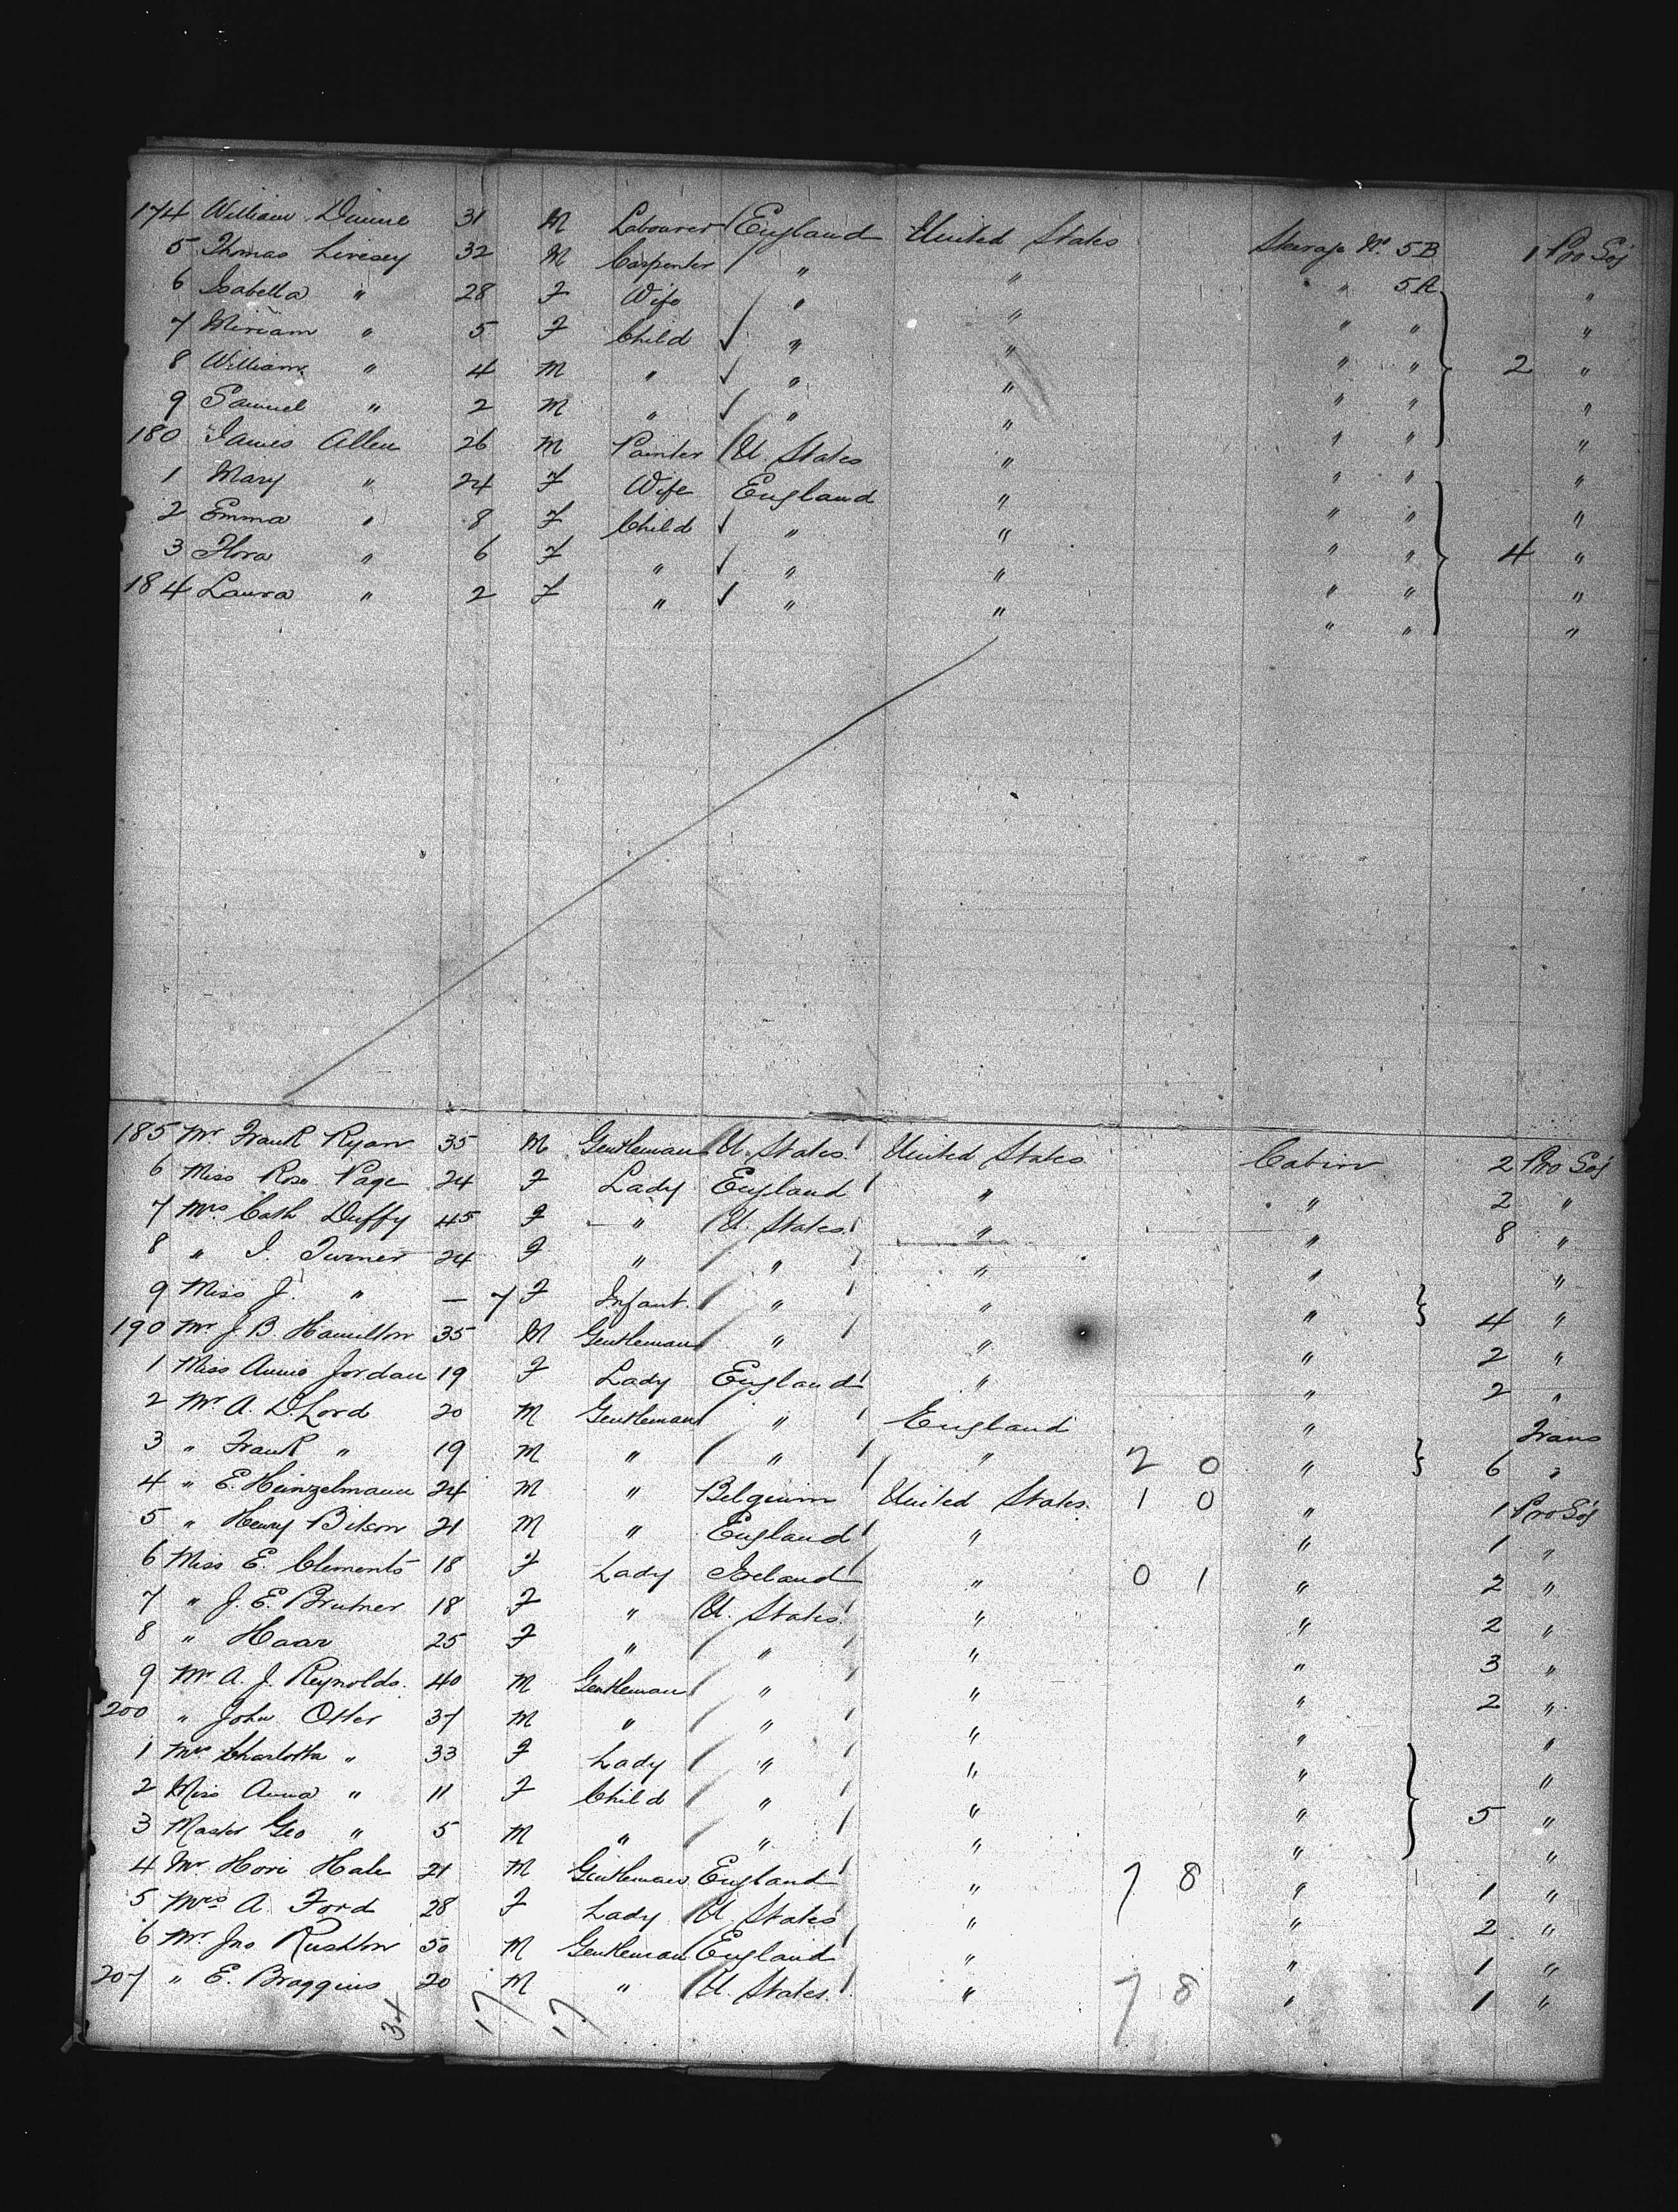 174 William Dunne 31 M Labourer England United States Steerage No. 5B 1 Pro Soj
5 Thomas Livesey 32 M Carpenter " " " 5A "
6 Isabella " 28 F Wife " " " " "
7 Miriam " 5 F Child " " " " 2 "
8 William " 4 M " " " " " "
9 Samuel " 2 M " " " " " "
180 James Allen 26 M Painter U. States " " " "
1 Mary " 24 F Wife England " " " "
2 Emma " 8 F Child " " " " 4 "
3 Flora " 6 F " " " " " "
184 Laura " 2 F " " " " " "
185 Mr Frank Ryan 35 M Gentleman U. States United States Cabin 2 Pro Soj
6 Miss Rose Page 24 F Lady England " " 2 "
7 Mrs Cath Duffy 45 F " U. States " " 8 "
8 " I Turner 24 F " " " " "
9 Miss J. " — 7 F Infant " " " 4 "
190 Mr J. B. Hamilton 35 M Gentleman " " " 2 "
1 Miss Annie Jordan 19 F Lady England " " 2 "
2 Mr A. D. Lord 20 M Gentleman " England " Trans
3 " Frank " 19 M " " " 2 0 " 6 "
4 " E. Heinzelmann 24 M " Belgium United States 1 0 " 1 Pro Soj
5 " Henry Bitson 21 M " England " " 1 "
6 Miss E. Clements 18 F Lady Ireland " 0 1 " 2 "
7 " J. E. Brutner 18 F " U. States " " 2 "
8 " Haar 25 F " " " " 3 "
9 Mr A. J. Reynolds 40 M Gentleman " " " 2 "
200 " John Otter 37 M " " " " "
1 Mrs Charlotta " 33 F Lady " " " "
2 Miss Anna " 11 F Child " " " 5 "
3 Master Geo " 5 M " " " " "
4 Mr Hori Hale 21 M Gentleman England " 7 8 " 1 "
5 Mrs A. Ford 28 F Lady U. States " " 2 "
6 Mr Jno Rushton 50 M Gentleman England " " 1 "
207 " E. Braggins 20 M " U. States " 7 8 " 1 "
34 17 17